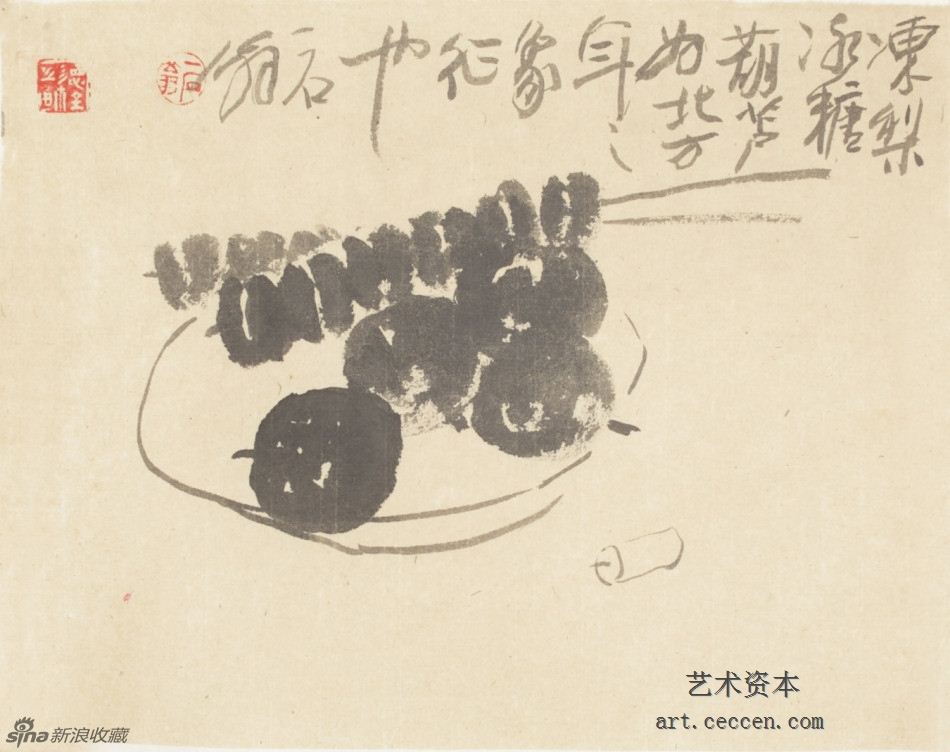 凍梨
冰糖
葫芦
为北方
年之
象征
也
石
翁
艺术资本
art.ceccen.com
sina新浪收藏